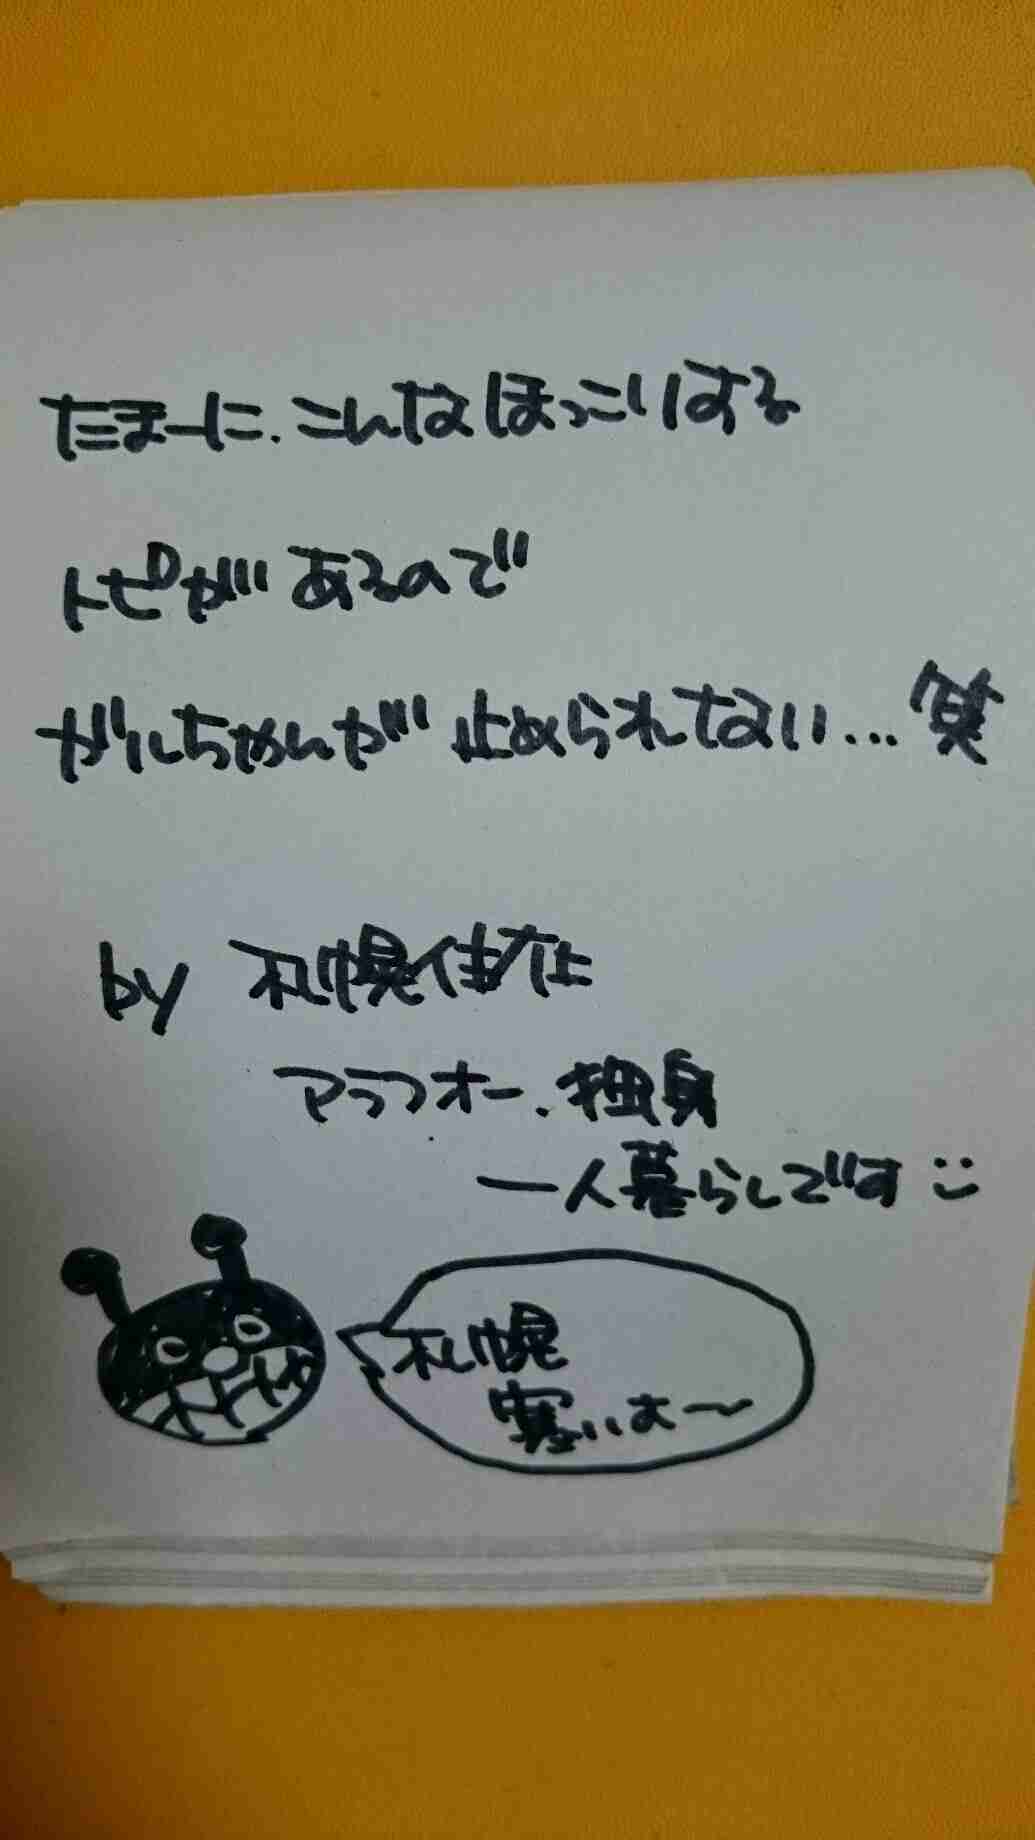 たまーに、こんなほっこりする
トピがあるので
ガルちゃんが止められてない…笑
by 札幌住在
アラフォー、独身
一人暮らしです :)
札幌
寒いよ〜